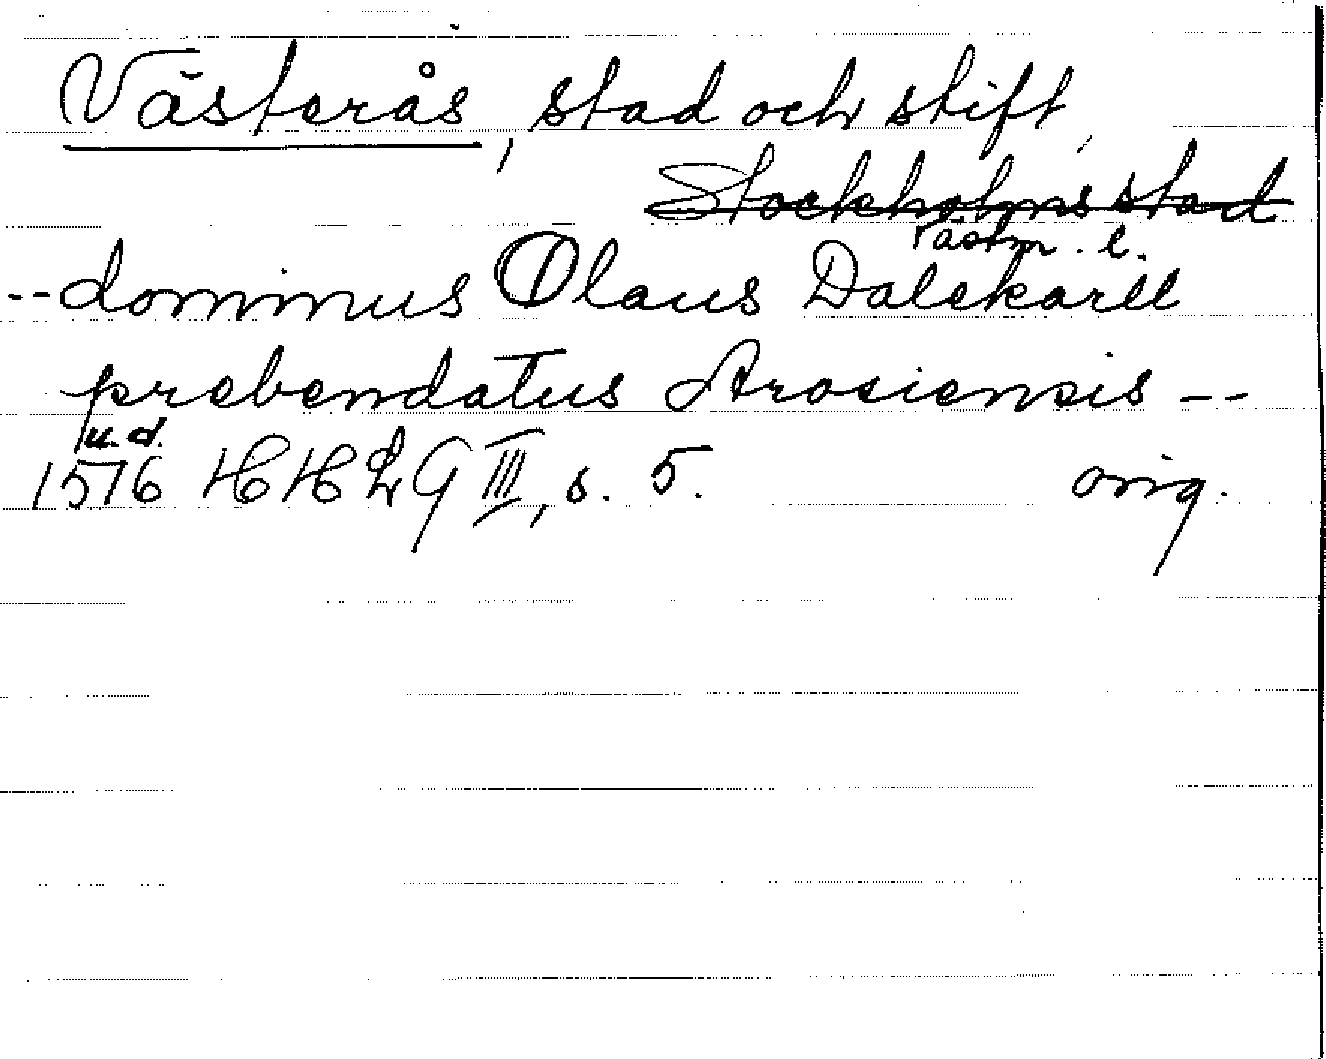 Västerås, stad och stift,
Stockholms stad
Västm. l.
--dominus Olaus Dalekarll
prebendatus Arosiensis --
u. d.
1576 HHLG III, s. 5. orig.